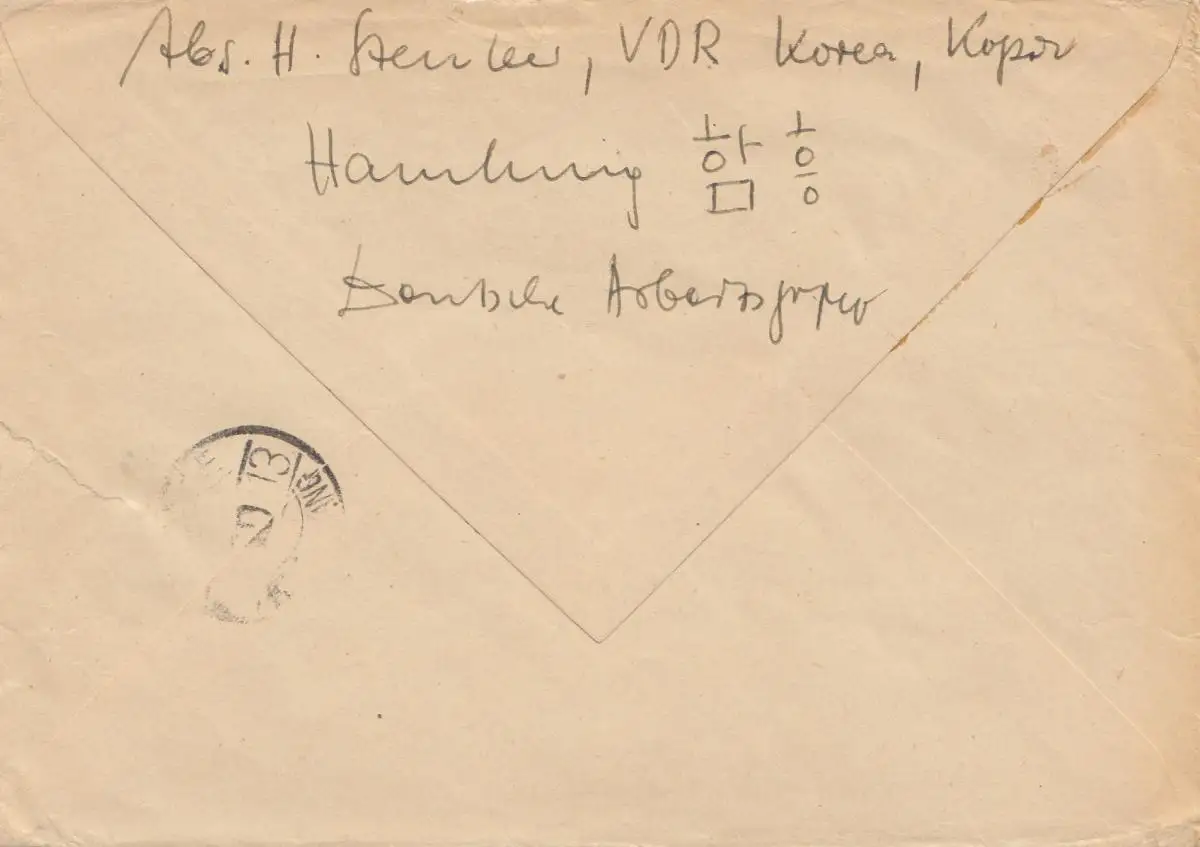 Abs. H. Stenker, VDR Korea, Корея
Hamhung 함흥
Deutsche Arbeitsgruppe
13